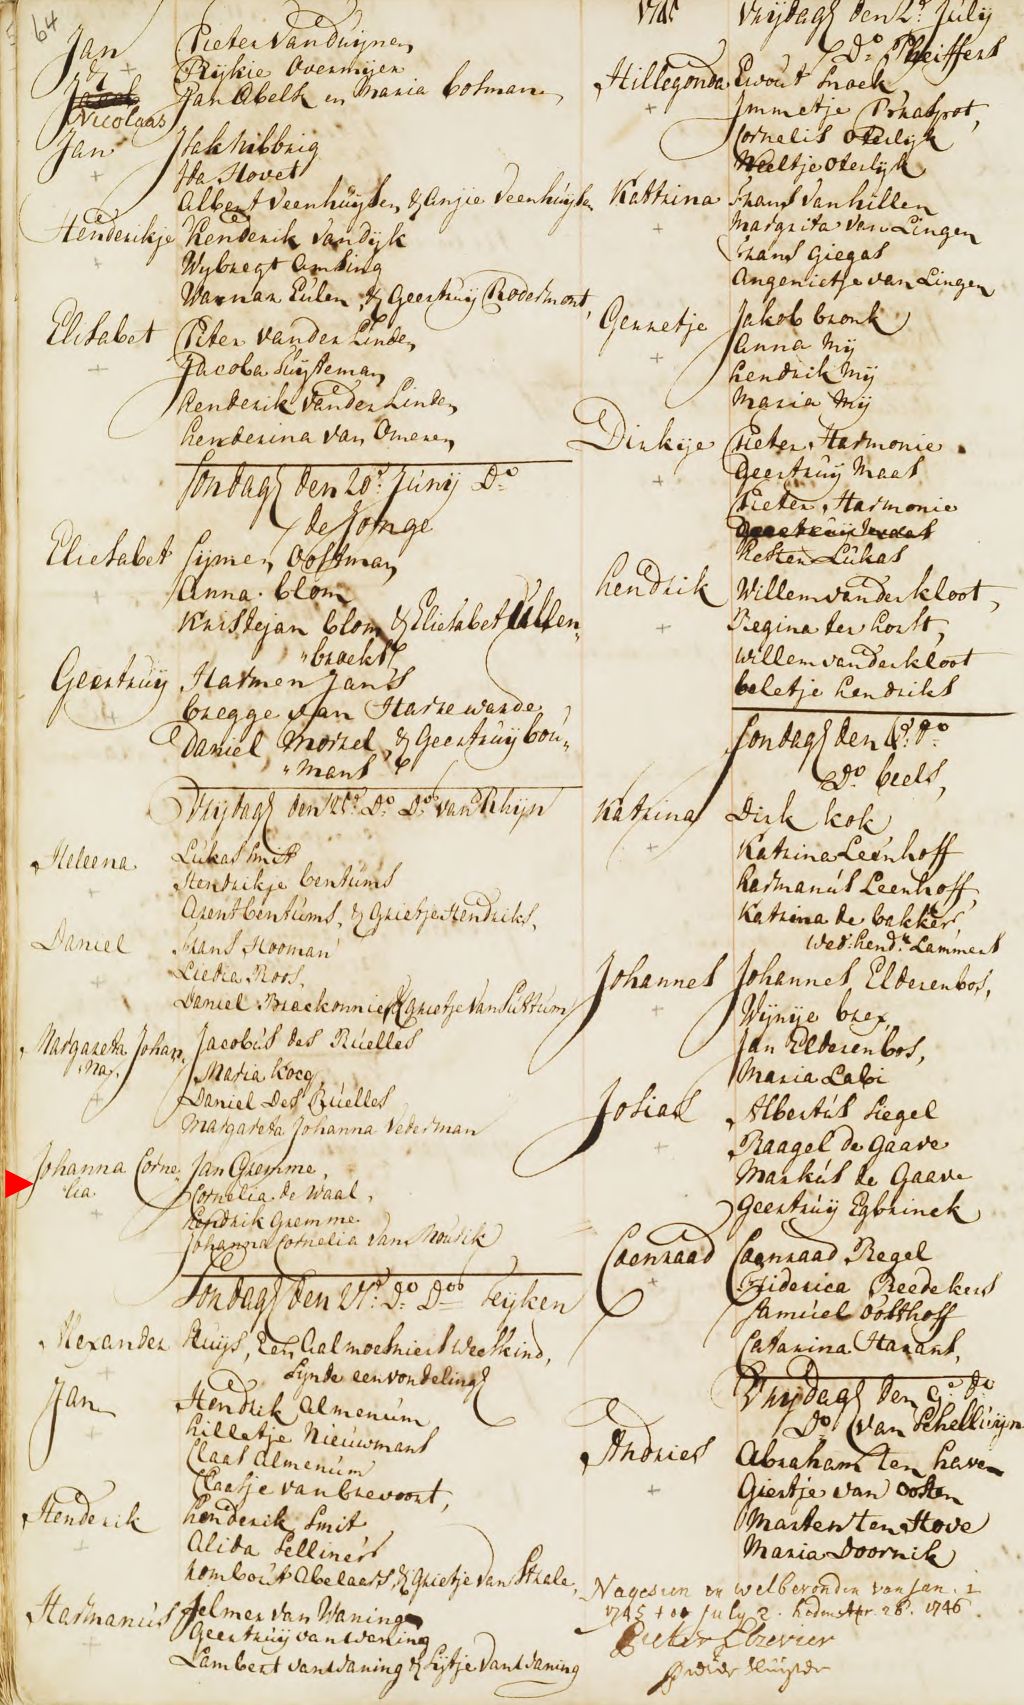 64
Jan Pieter van Duijnen
& Rijkie Overmijer
Nicolaas Jan Abelk en Maria Cosman
Jan Isak hibbrig
Ida Hovet
Albert Veenhuijsen, & Anjie Veenhuijsen
Henderikje Henderik van Dijk
Wijbregt Amsing
Warnar Eulen, & Geertruij Rodermont,
Elisabet Pieter vander Linden
Jacoba Suijteman
henderik vander Linden
henderina van Omeren
Sondags den 20e. Junij Do.
de Jonge
Eliesabet Sijmen Oostman
Anna blom
Kristejan blom & Eliesabet Cullen„
„braekts
Geertruij Harmen Jans
bregge van Harrewarde,
Daniel Morrel, & Geertruij bou„
„mans
Vrijdags den 25e. Do. Do. van Rhijn
Heleena Lukas Smit
Hendrikje bentums
Arent bentums, & Grietje Hendriks,
Daniel Frans Hooman
Liedia Roos,
Daniel Braekonnier & Grietje van Suttum
Margareta Johan„ Jacobus des Ruelles
„na, Maria Kocq
Daniel Des Ruelles
Margareta Johanna Vederman
Johanna Corne„ Jan Gremme,
lia Cornelia de Waal,
Hendrik Gremme
Johanna Cornelia van Mourik
Sondags den 27e. Do. Do. Seyken
Alexander Ruijs, Een Aalmoesniers weeskind,
Sijnde een vondeling
Jan Hendrik Almenum
hilletje Nieuwmans
Claas Almenum
Claasje van brevoort,
Henderik henderik Smit
Alida Selliners
Rombout Abelaars, & Grietje van Strale,
Harmanus Jelmer van Waning
Geertruij van Waning
Lambert van Waning & Sijtje van Waning
1745 Vrijdags den 2e. July
Do. Pheiffers
Hillegonda Ewout Snoek,
Immetje Praatgrot,
Cornelis Oterlijk
Neeltje Oterlijk
Kattrina Frans van hillen
Margrita van Lingen
Frans Giegas
Angenietje van Lingen
Gerretje Jakob bronk
Anna Mij
hendrik Mij
Maria Mij
Dirkije Pieter Harmonie
Geertruij Maas
Pieter Harmonie
Hester Lukas
hendrik Willem vander kloot,
Regina ter horst,
willem vander kloot
beletje hendriks
Sondags den 4e. Do.
Do. beels,
Katrina Dirk kok
Katrina Leenhoff
harmanus Leenhoff,
Katrina de bakker
wed: hendk. Lammers
Johannes Johannes Elderenbos,
Wijnije brex
Jan Elderenbos,
Maria Labi
Josias Albertus Siegel
Raagel de Gaave
Markus de Gaave
Geertruij Egbrinck
Coenraad Coenraad Regel
Friderica Reedekers
Samuel Oosthoff
Catarina Harans,
Vrijdags den 9e. do.
Do. van Schelluijn
Andries Abraham ten haven
Giertje van Oosten
Marten ten Hove
Maria Doornik
Nagesien en welbevonden van Jan. 1
1745 tot July 2. 28. 1746.
Pieter Elzevier